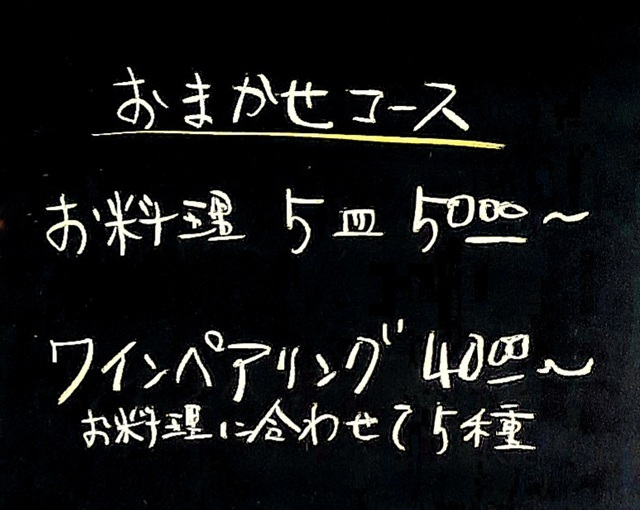 おまかせコース
お料理 5皿 5000〜
ワインペアリング 4000〜
お料理に合わせて5種